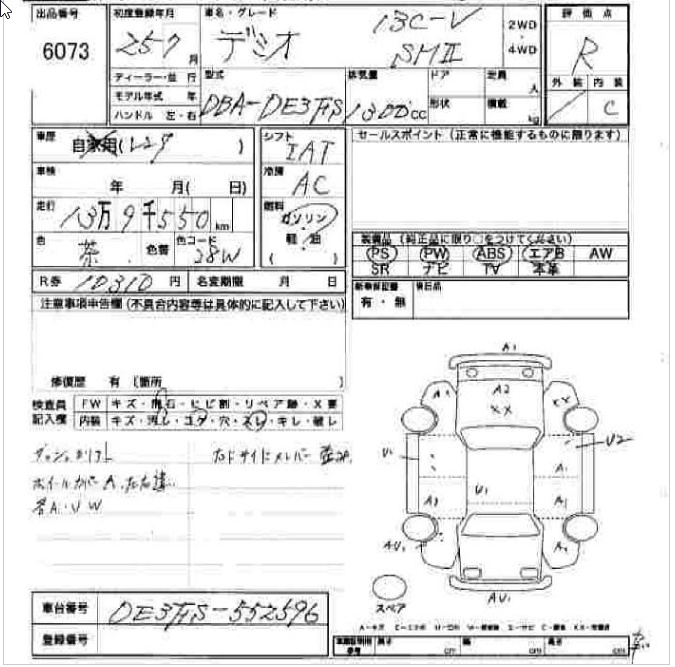 出品番号 初度登録年月 車名・グレード 評価点
6073 25 7 月 デミオ 13C-V SMⅡ 2WD・4WD R
ディーラー・並行 型式 排気量 ドア 定員 人 外装 内装
モデル年式 年 DBA-DE3FS 1300cc 形状 積載 kg C
ハンドル 左・右
車歴 自家用( ) シフト セールスポイント (正常に機能するものに限ります)
IAT
車検 年 月( 日) 冷房 AC
走行 13万9千550km 燃料 ガソリン・軽油
色 茶 色替 色コード 38W ( ) 装備品 (純正品に限り○をつけてください)
PS PW ABS エアB AW
SR ナビ TV 本革
R券 10310円 名変期限 月 日 新車保証書 有・無
注意事項申告欄 (不具合内容等は具体的に記入して下さい)
修復歴 有 (箇所 )
検査員記入欄 FW キズ・飛石・ヒビ割・リペア跡・X要
内装 キズ・汚レ・コゲ・穴・スレ・キレ・破レ
ホイールカバー A
各A・U W
A1
A2
XX
A1
XX
U1
U2
A1
U1
A2
A1
AU1
A2
AU1
スペア
車台番号 DE3FS-552596
登録番号